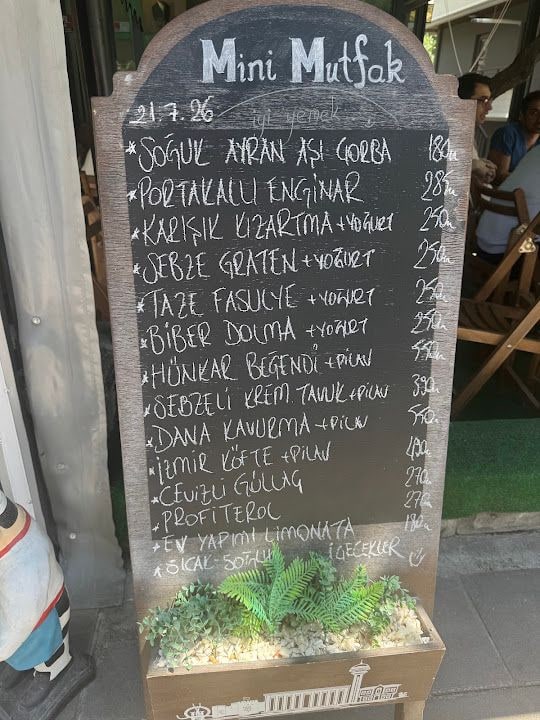 Mini Mutfak
iyi yemek
21.7.26
* SOĞUK AYRAN AŞI ÇORBA 180₺
* PORTAKALLI ENGİNAR 285₺
* KARIŞIK KIZARTMA + YOĞURT 250₺
* SEBZE GRATEN + YOĞURT 250₺
* TAZE FASULYE + YOĞURT 250₺
* BİBER DOLMA + YOĞURT 250₺
* HÜNKAR BEĞENDİ + PİLAV 550₺
* SEBZELİ KREM. TAVUK + PİLAV 390₺
* DANA KAVURMA + PİLAV 550₺
* İZMİR KÖFTE + PİLAV 490₺
* CEVİZLİ GÜLLAÇ 270₺
* PROFİTEROL 270₺
* EV YAPIMI LİMONATA 180₺
* SICAK-SOĞUK İÇECEKLER